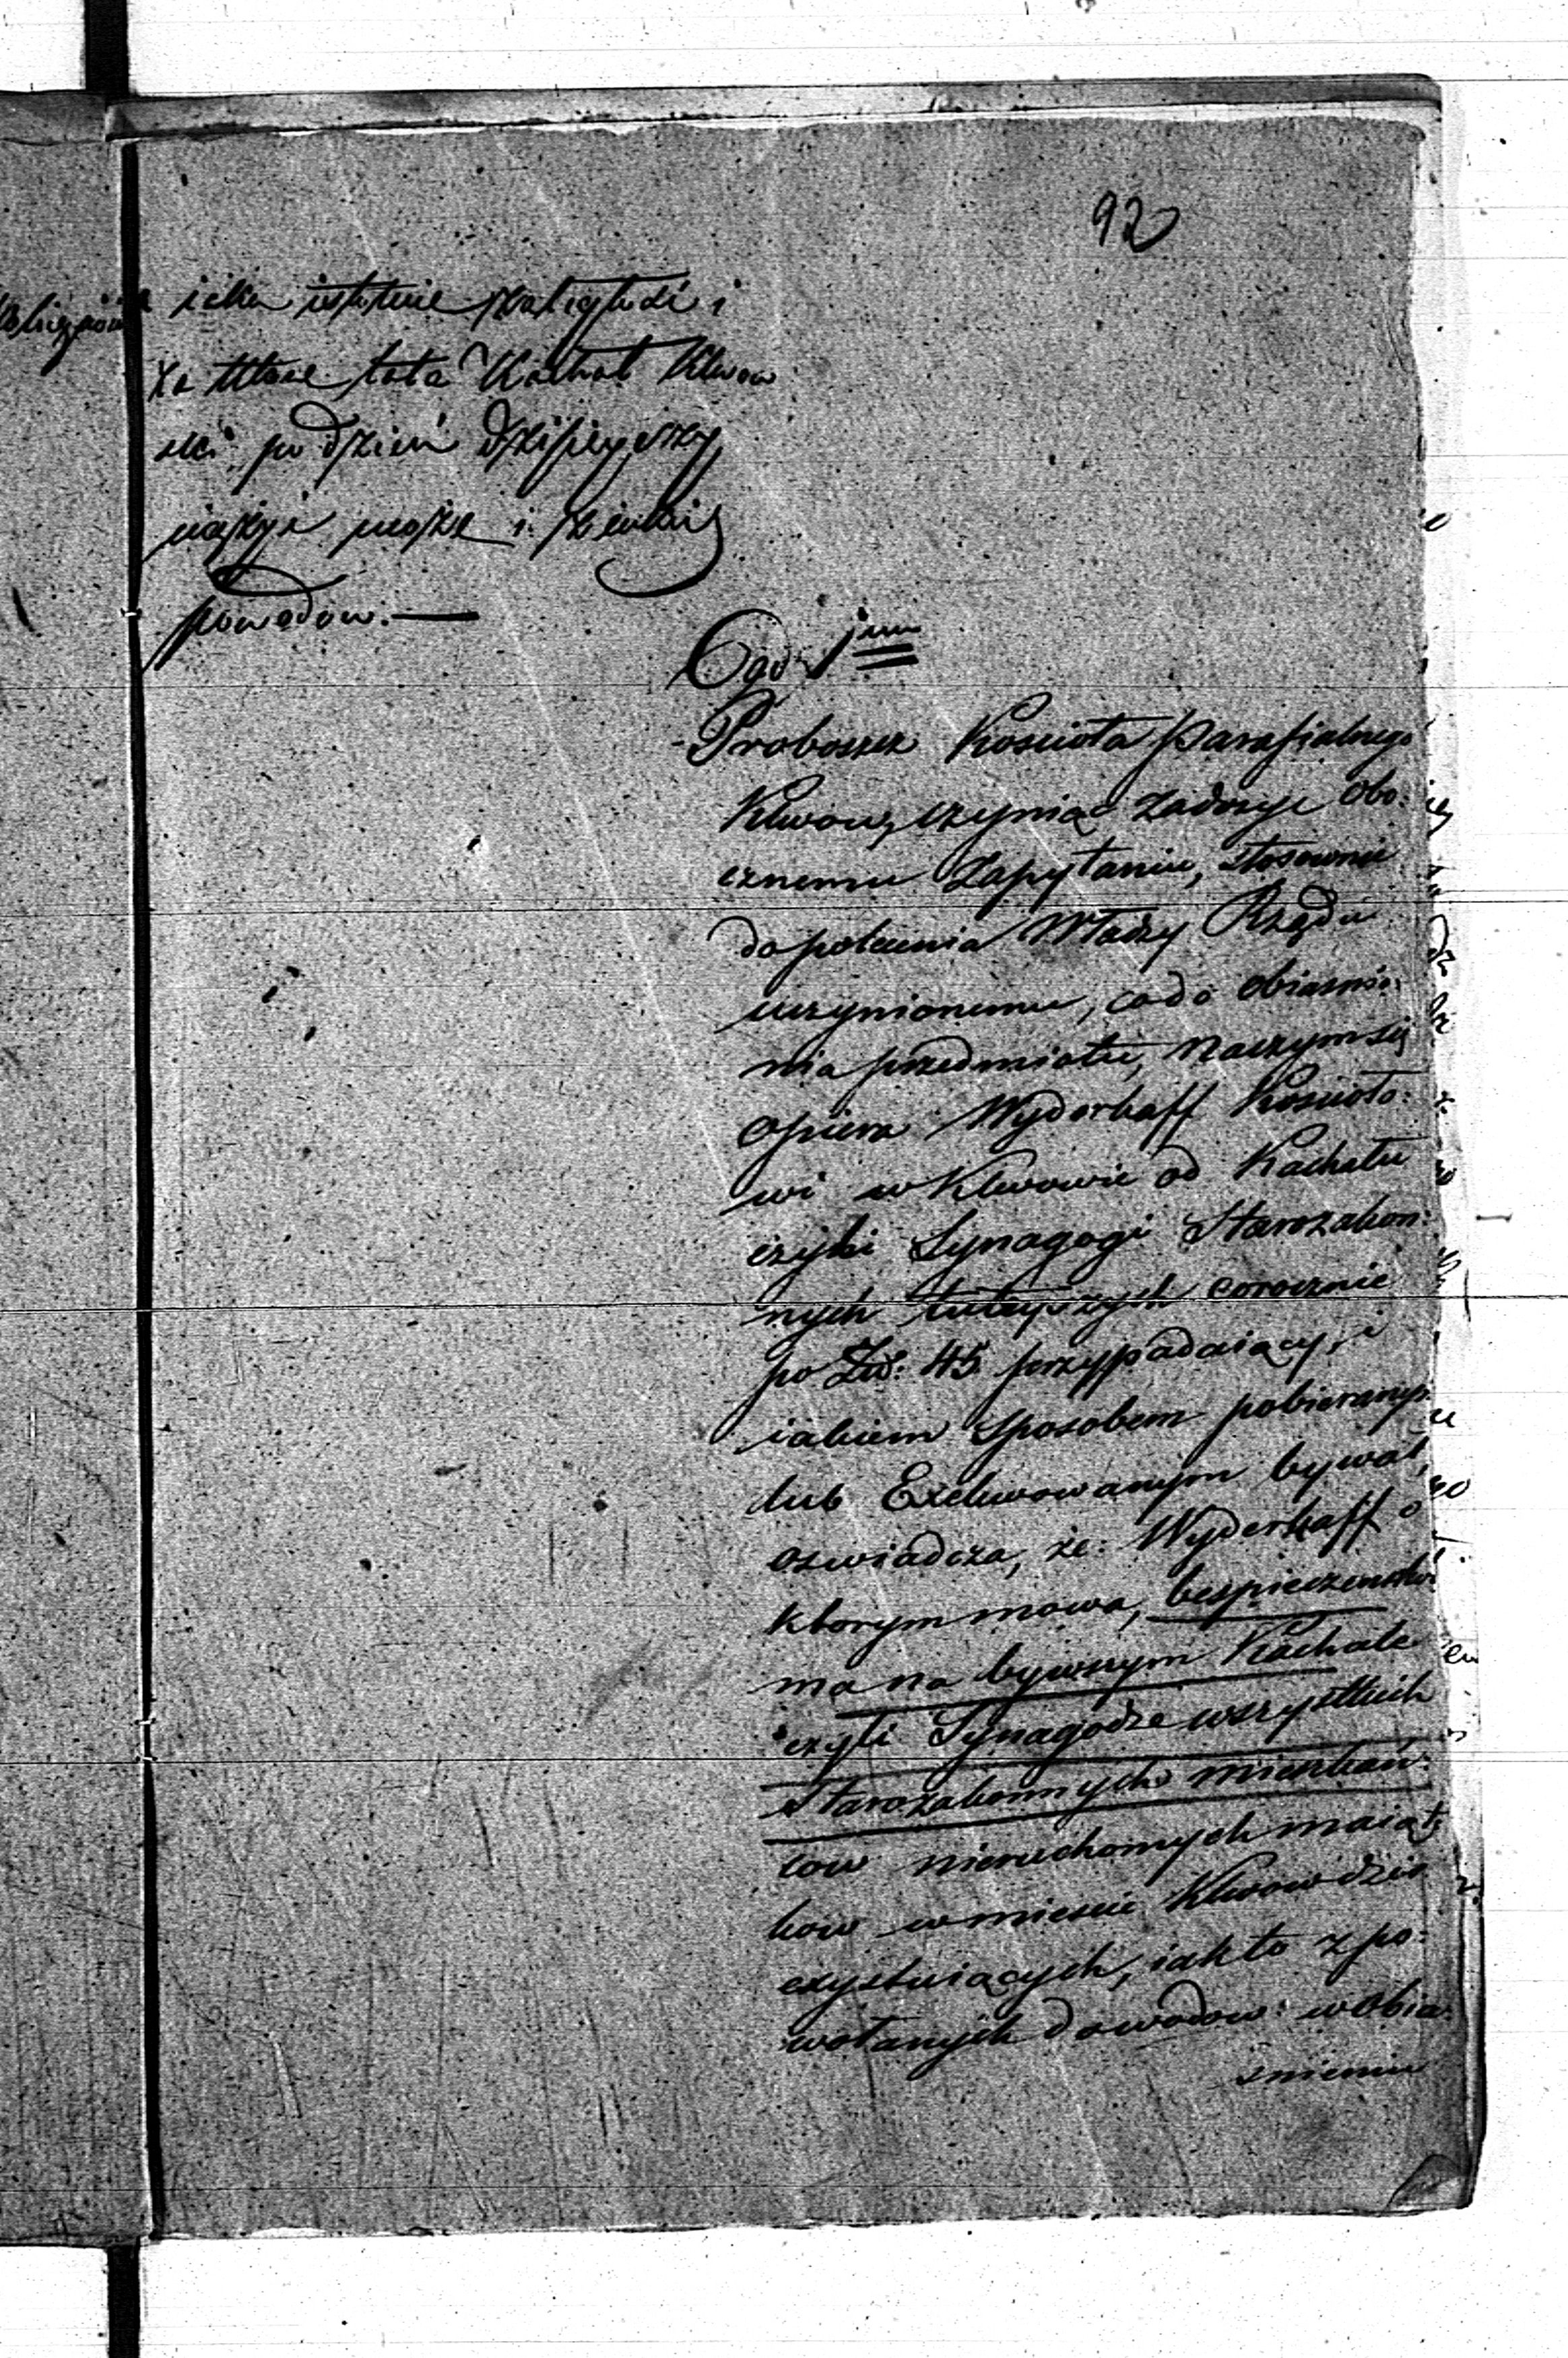 92
iakie istotnie zaległości i
za które lata Kachał Klwow
ski po dzień dzisieyszy
winien może i z iakich
powodów. —
Ogo 1mo
Proboszcz Koscioła Parafialnego
Klwow, czyniąc zadosyć obo:
cznemu Zapytaniu, stosownie
do polecenia Władzy Rządu
uczynionemu, co do obiasnie:
nia przedmiotu, na czym się
opiera Wyderkaff Kościoło:
wi w Klwowie od Kachału
czyli Synagogi Starozakon:
nych tuteyszych corocznie
po Zło: 45 przypadaiący, i
iakiem Sposobem pobieranym
lub Exekwowanym bywał,
oswiadcza, że: Wyderkaff o
ktorym mowa, bespieczenstwo
ma na bywszym Kachale
czyli Synagodze wszystkich
Starozakonnych mieszkań:
cow nieruchomych maiąt:
kow w miescie Klwow dzie
czystwiących, iak to z po:
wołanych dowodow: w Obia:
snieniu